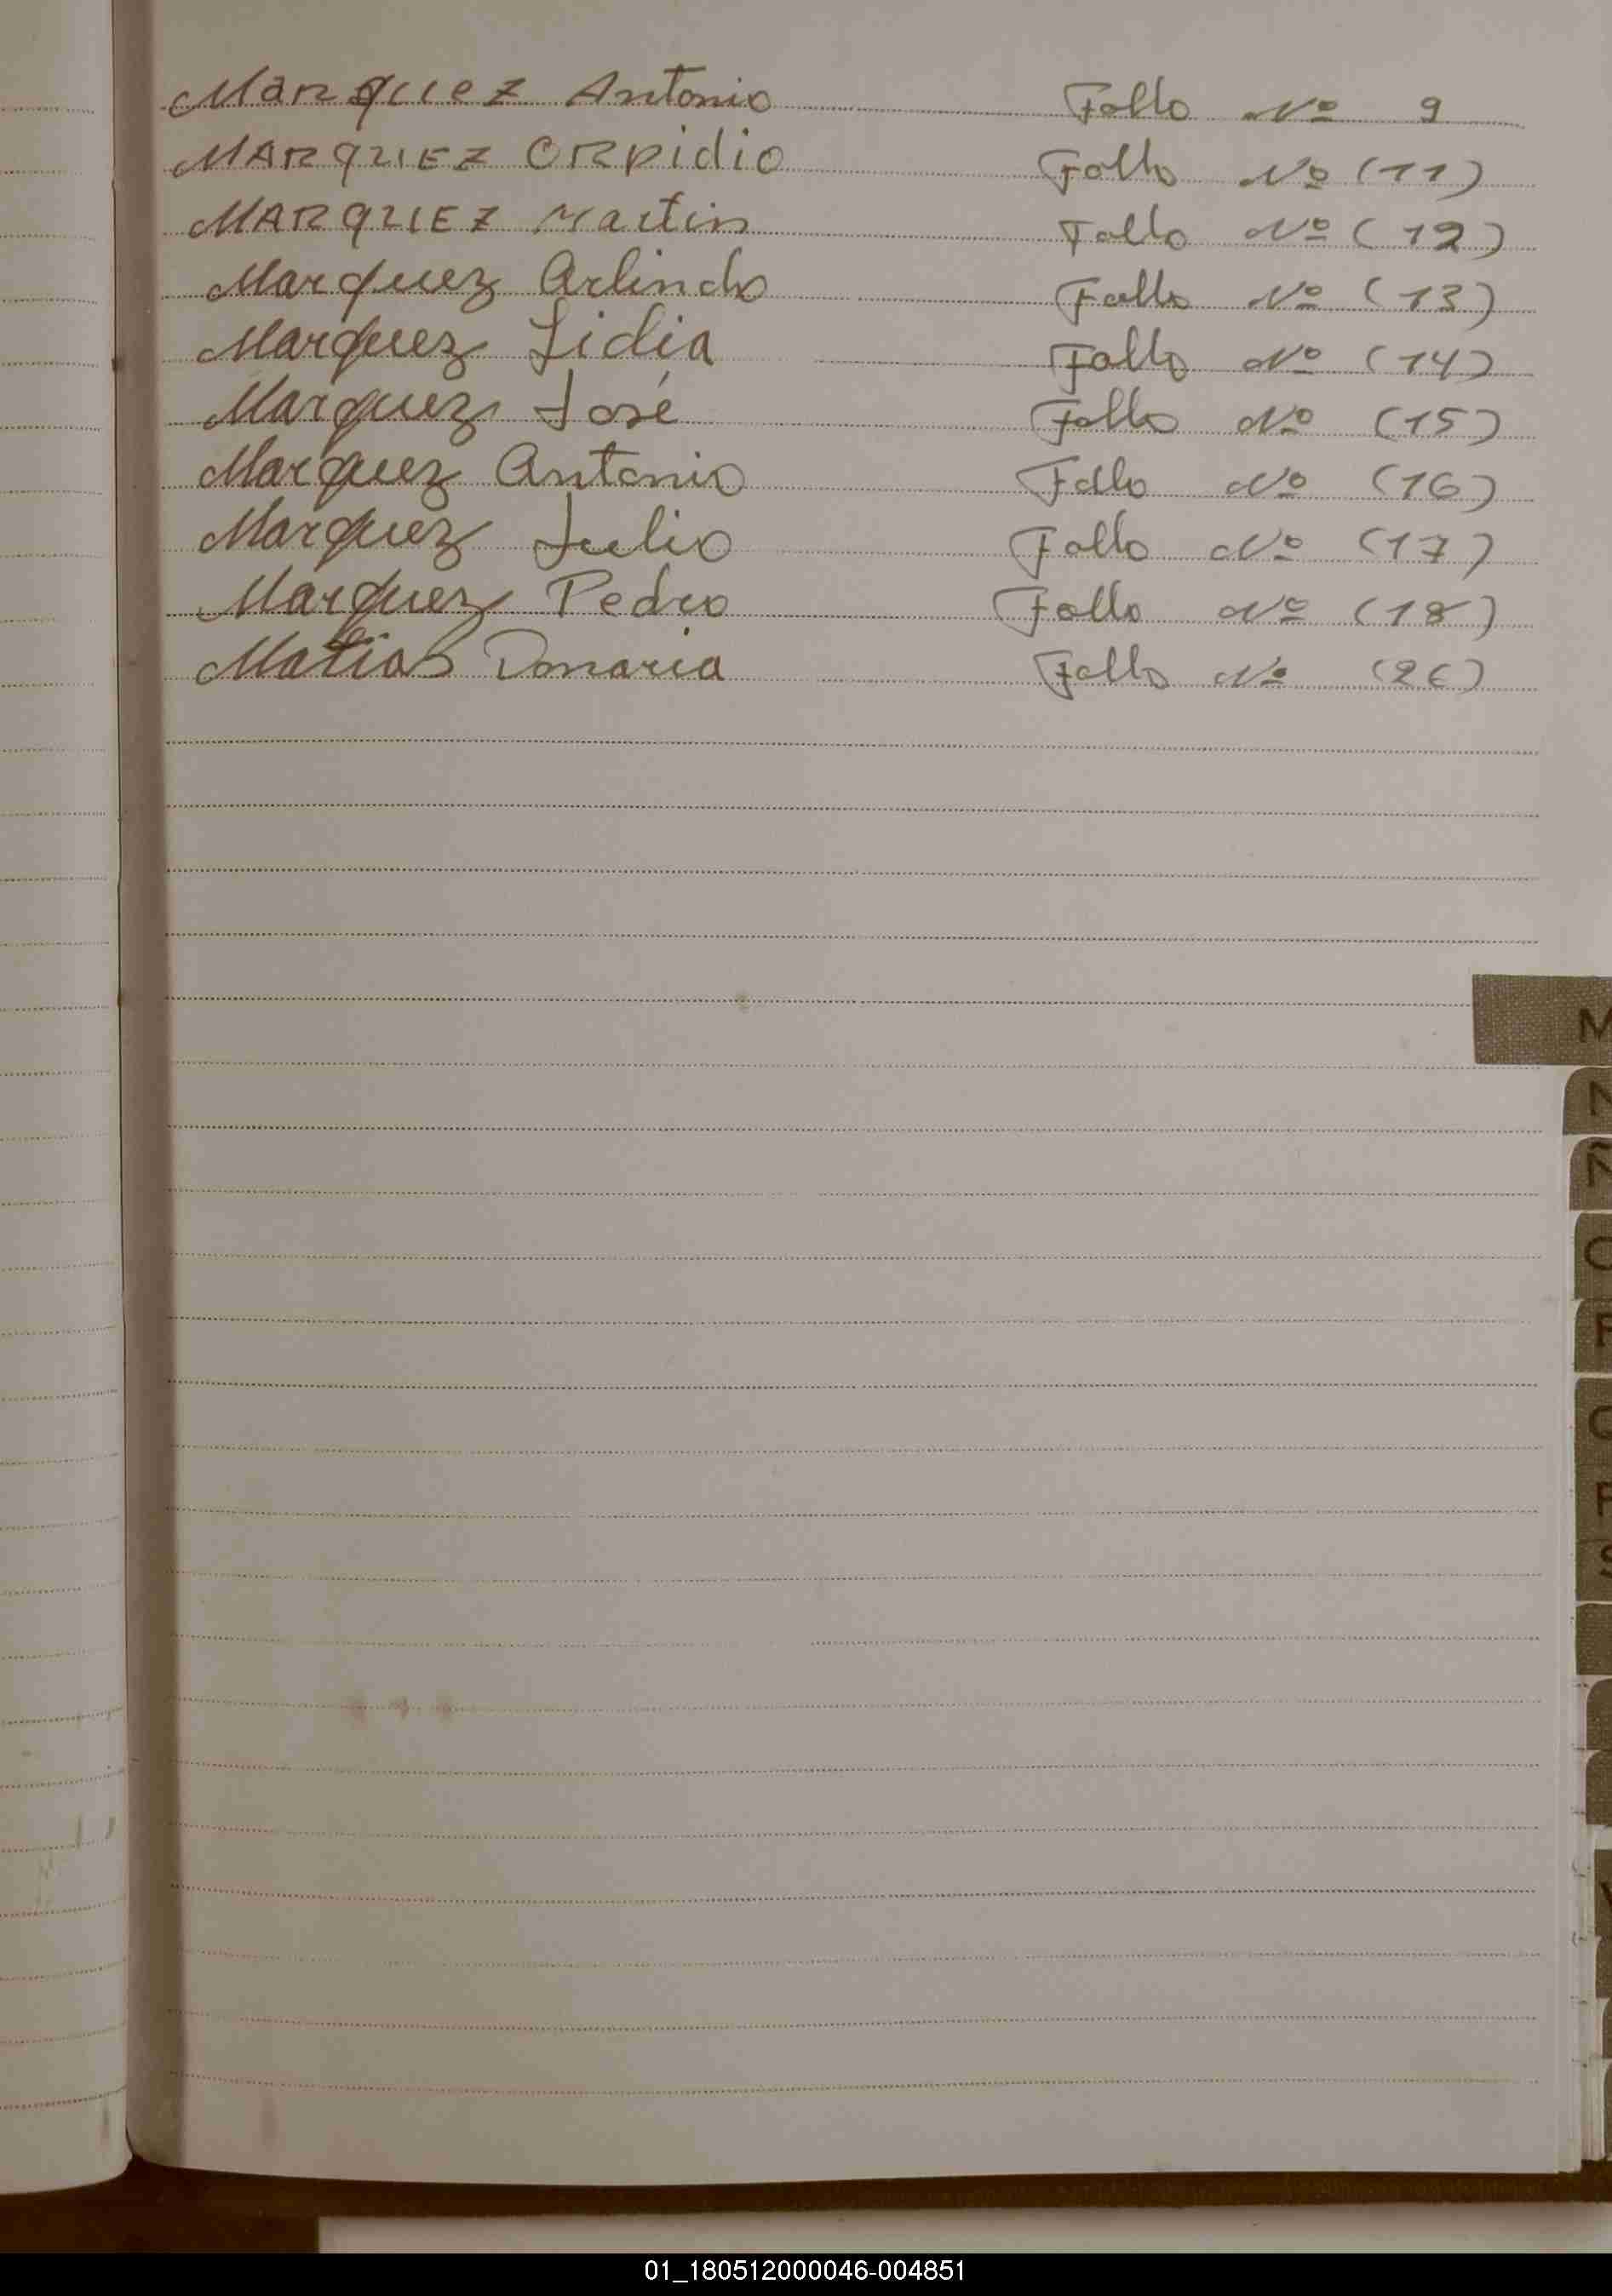 Marquez Antonio Fallo Nº 9
MARQUEZ ORPidio Fallo Nº (11)
MARQUEZ Martin Fallo Nº (12)
Marquez Arlindo Fallo Nº (13)
Marquez Lidia Fallo Nº (14)
Marquez José Fallo Nº (15)
Marquez Antonio Fallo Nº (16)
Marquez Julio Fallo Nº (17)
Marquez Pedro Fallo Nº (18)
Matias Donaria Fallo Nº (26)
M
N
Ñ
O
P
Q
R
S
V
01_180512000046-004851